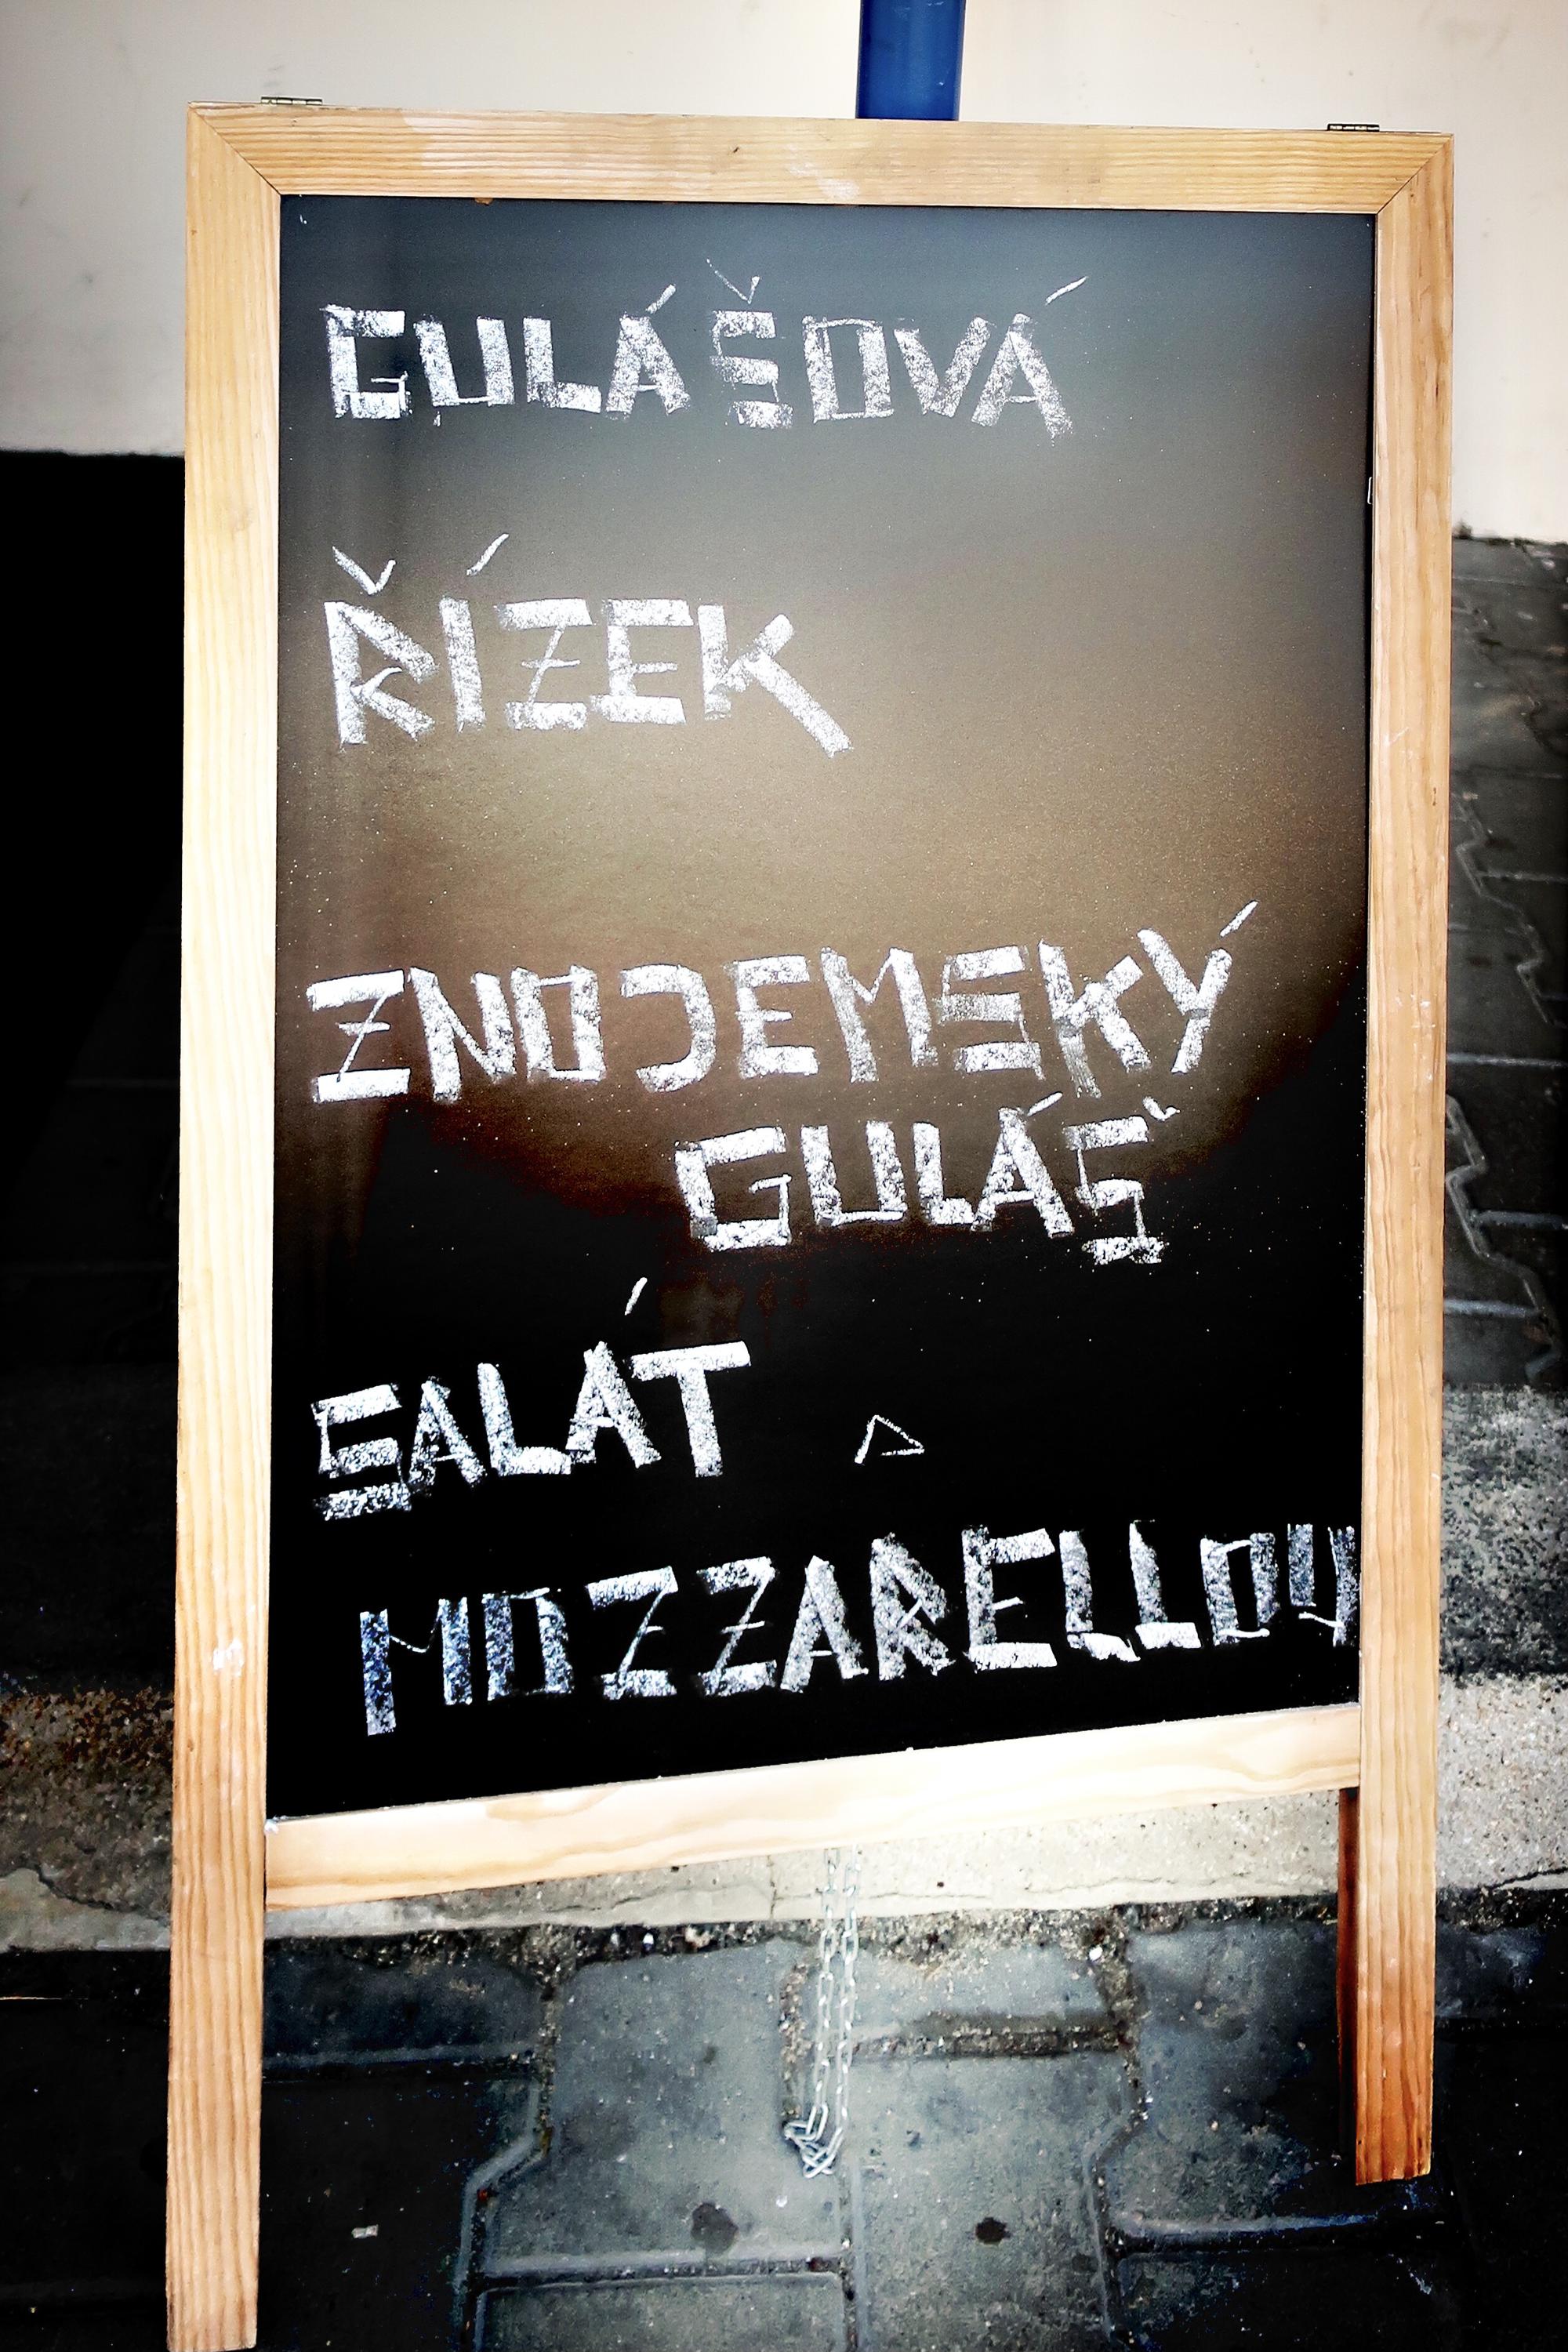 GULÁŠOVÁ
ŘÍZEK
ZNOJEMSKÝ
GULÁŠ
SALÁT
MOZZARELLOU